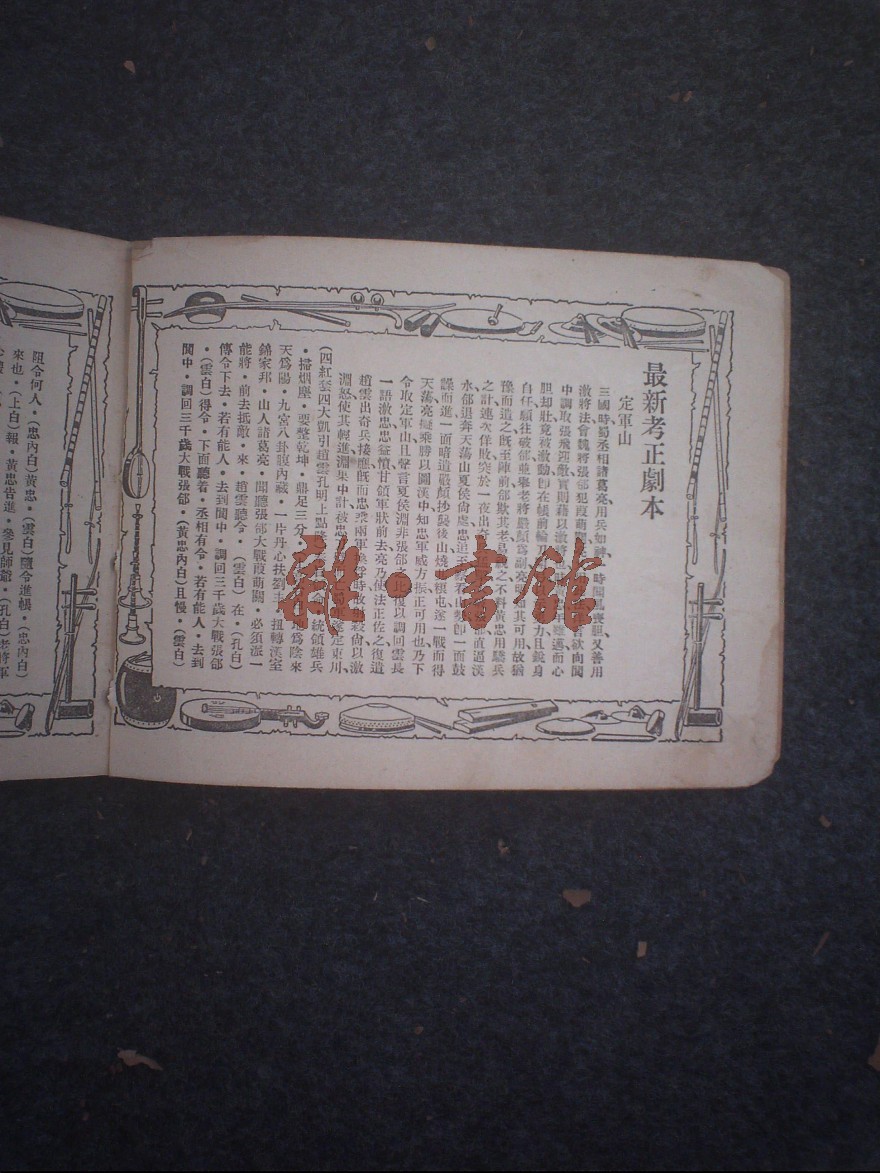 最新考正劇本
定軍山
三國時蜀丞相諸葛亮用兵如神、一時聞風喪胆、又善用
激將法、會魏將張郃犯葭萌
中調取張飛迎敵、實則藉以激將
胆却壯、竟被激動、卽在帳前輪刀
自任願往破郃、並舉老將嚴顏爲副、亮明知其可用、故猶
豫而遣之、旣至陣前、郃欺其老、易之、不料黃忠用驕兵
之計、連次佯敗、突於一夜出
永郃退奔天蕩山夏侯尙處、忠追至
譟而進、一面暗遣嚴顏抄襲後山、燒其糧屯、遂一戰而得
天蕩、亮擬乘勝以圖漢中、知忠軍威方振、正可用也、乃下
令取定軍山、且聲言夏侯淵非張郃之比、復以調回雲長
一語激忠、忠益憤、甘領軍狀前去、亮乃使法正佐之、復遣
趙雲出奇兵接應、旣而忠乘兩軍換俘時、故射殺尙以激
淵怒、使其輕進、淵果中計被忠
(四紅套四大凱引趙雲孔明上點
・掃烟塵・要整乾坤・鼎足三分
天爲陽・九宮八卦腹內藏・一片丹心扶劉主・扭轉漢室
錦家邦・山人諸葛亮・聞聽張郃大戰葭萌關・必須派一
能將・前去抵敵・來・趙雲聽令・(雲白)在・(孔白)
傳令下去・若有能人・去到閬中・調回三千歲大戰張郃
・(雲白)得令・下面聽着・丞相有令・若有能人・去到
閬中・調回三千歲大戰張郃・(黃忠內白)且慢・(雲白)
阻令何人・(忠內白)黃忠・(雲白)隨令進帳・(忠內白)
來也・(上白)報・黃忠告進・參見師爺・(孔白)老將軍
雜・書館